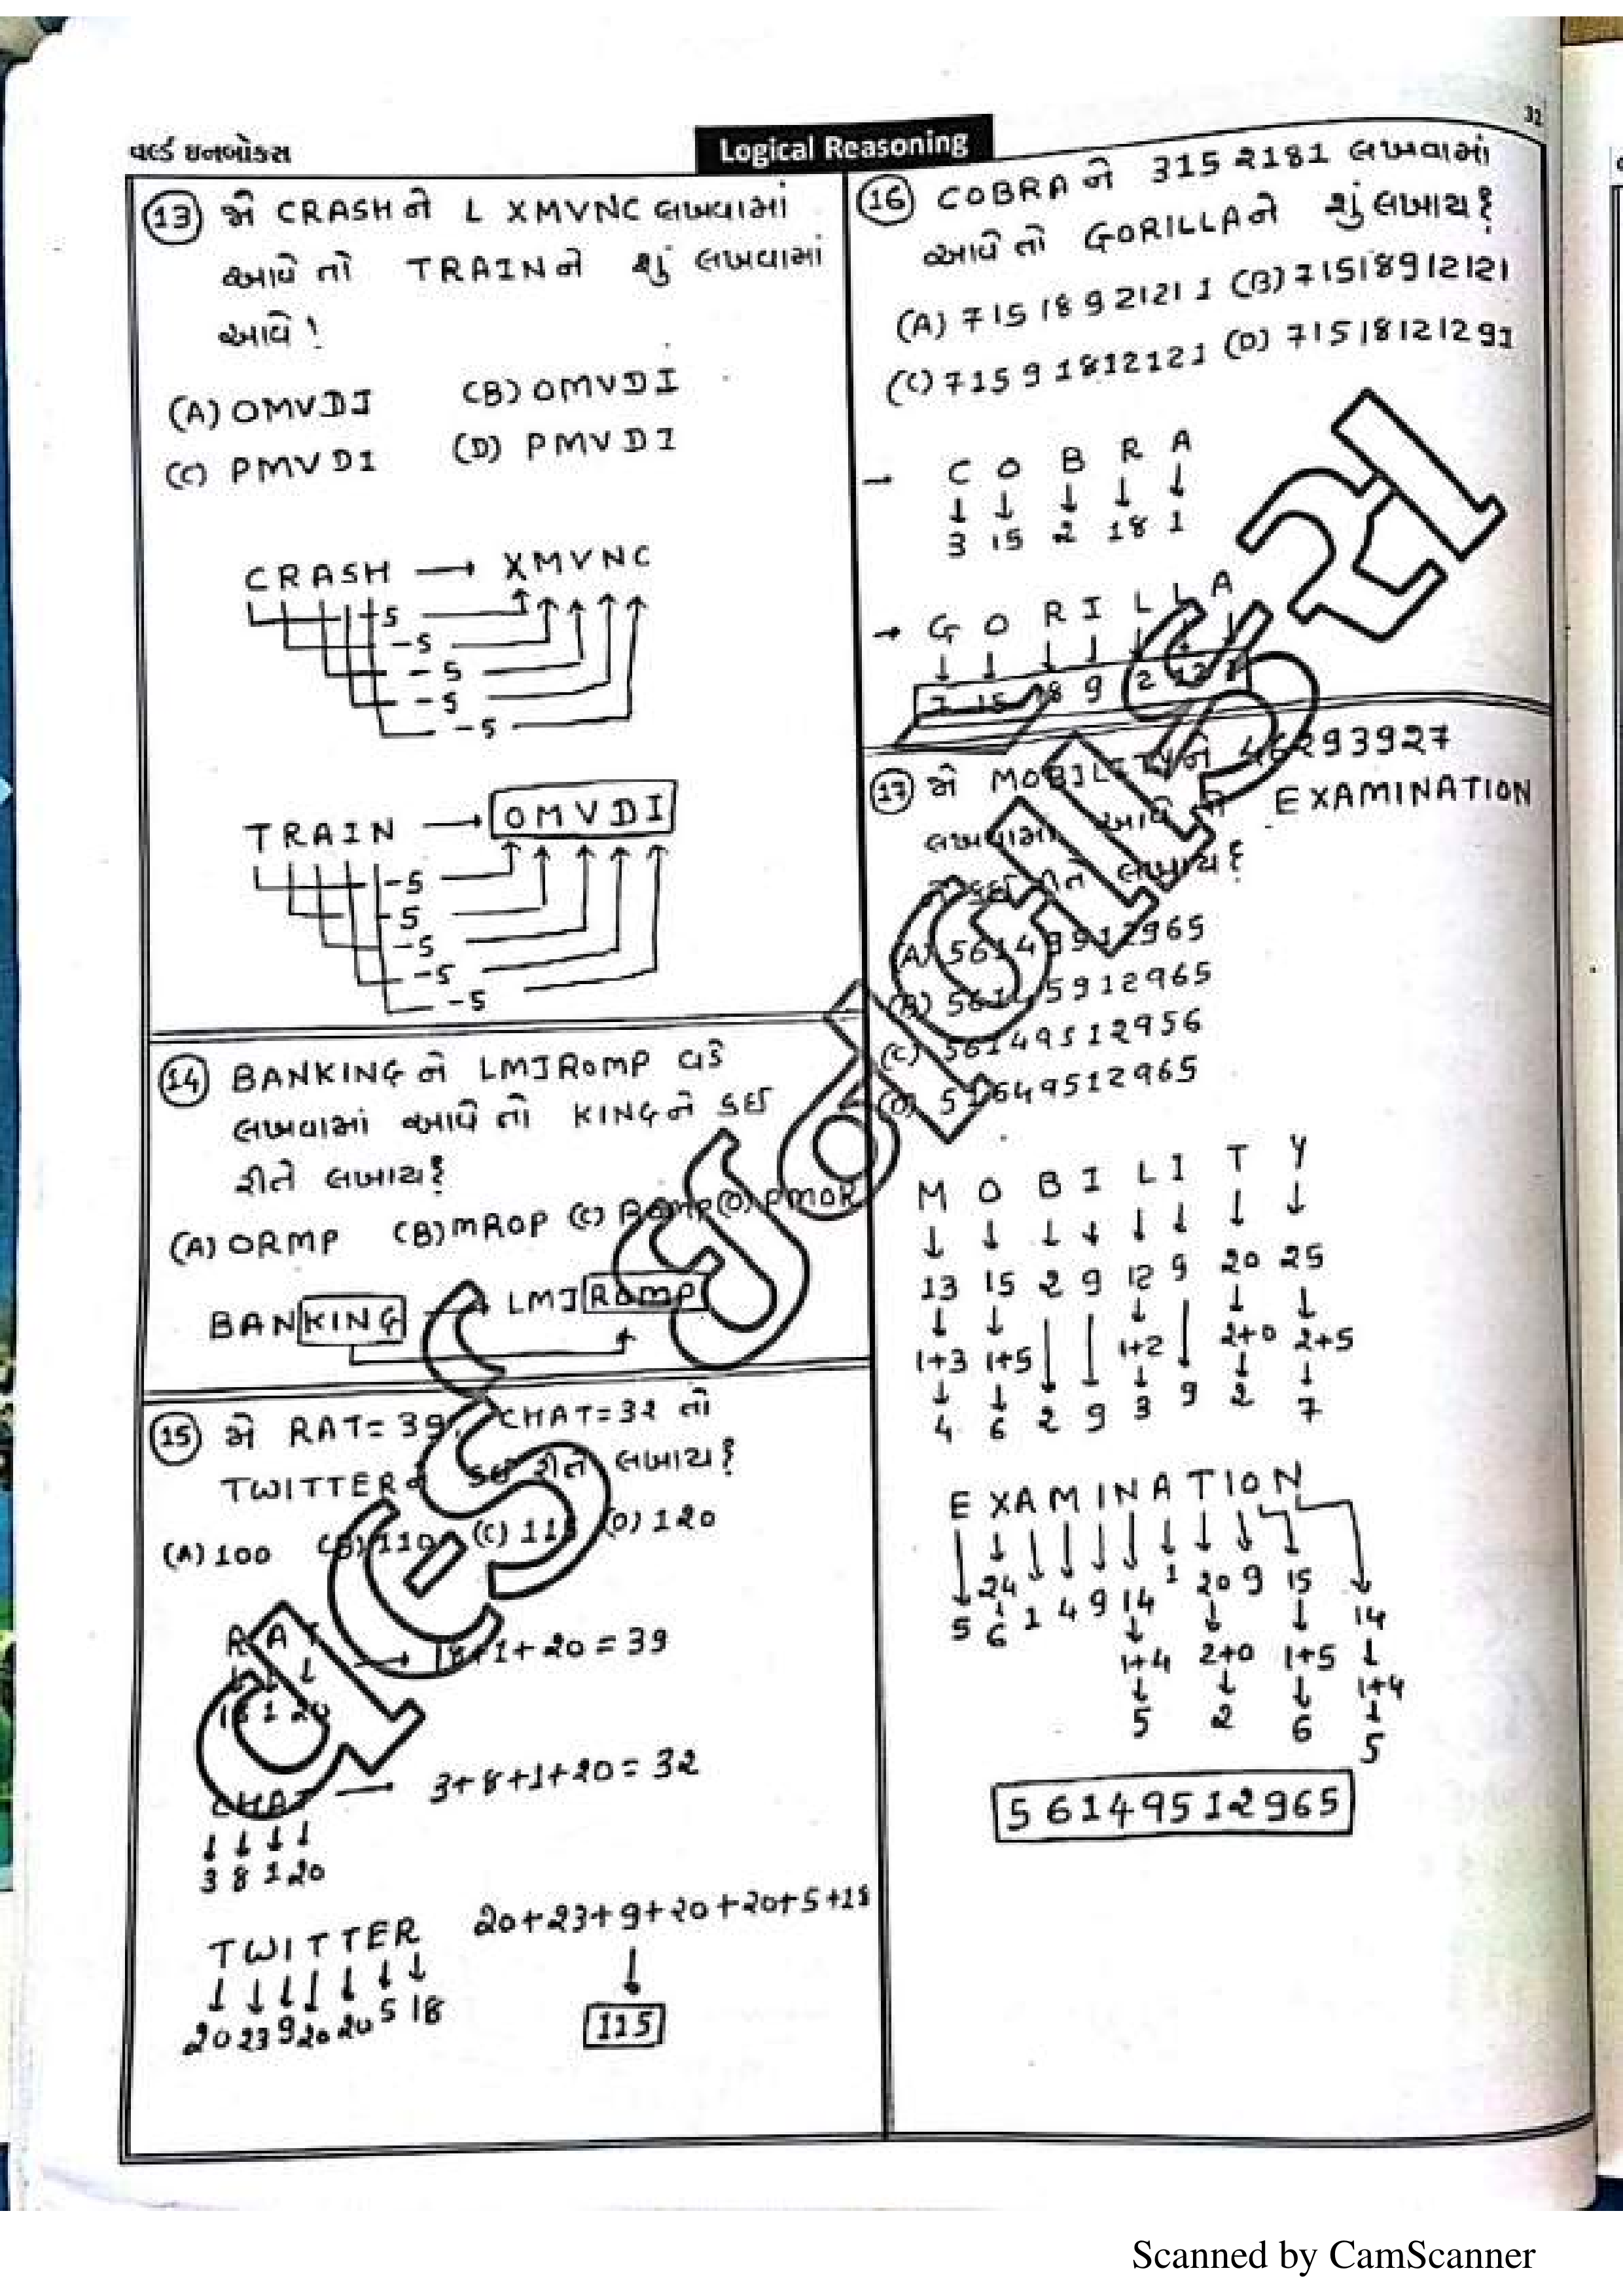 વર્લ્ડ ઇનબોક્સ
Logical Reasoning
32
(13) જો CRASH ને L XMVNC લખવામાં
આવે તો TRAIN ને શું લખવામાં
આવે !
(A) OMVDI (B) OMVDI
(C) PMVDI (D) PMVDI
CRASH → XMVNC
-5
-5
-5
-5
-5
TRAIN → OMVDI
-5
-5
-5
-5
-5
(14) BANKING ને LMJROMP વડે
લખવામાં આવે તો KING ને કઈ
રીતે લખાય?
(A) ORMP (B) MROP (C) ROMP (D) PMOR
BANKING → LMJROMP
(15) જો RAT = 39, CHAT = 32 તો
TWITTER ને કઈ રીતે લખાય?
(A) 100 (B) 110 (C) 115 (D) 120
RAT → 18+1+20 = 39
↓ ↓ ↓
18 1 20
CHAT → 3+8+1+20 = 32
↓ ↓ ↓ ↓
3 8 1 20
TWITTER 20+23+9+20+20+5+18
↓ ↓ ↓ ↓ ↓ ↓ ↓ ↓
20 23 9 20 20 5 18 115
(16) COBRA ને 3152181 લખવામાં
આવે તો GORILLA ને શું લખાય?
(A) 71518921211 (B) 71518912121
(C) 71591812121 (D) 71518121291
→ C O B R A
↓ ↓ ↓ ↓ ↓
3 15 2 18 1
→ G O R I L L A
↓ ↓ ↓ ↓ ↓ ↓ ↓
7 15 18 9 12 12 1
(17) જો MOBILITY ને 46293927
લખવામાં આવે તો EXAMINATION
ને કઈ રીતે લખાય?
(A) 56149912965
(B) 56145912965
(C) 56149512956
(D) 51649512965
M O B I L I T Y
↓ ↓ ↓ ↓ ↓ ↓ ↓ ↓
13 15 2 9 12 9 20 25
↓ ↓ ↓ ↓ ↓
1+3 1+5 1+2 2+0 2+5
↓ ↓ ↓ ↓ ↓ ↓ ↓ ↓
4 6 2 9 3 9 2 7
E X A M I N A T I O N
24 14 1 20 9 15 14
5 6 1 4 9
1+4 2+0 1+5 1+4
↓ ↓ ↓ ↓
5 2 6 5
56149512965
Scanned by CamScanner